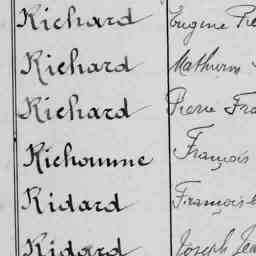 Richard Eugène Pie
Richard Mathurin
Richard Pierre Fra
Richomme François
Ridard François
Ridard Joseph Jea